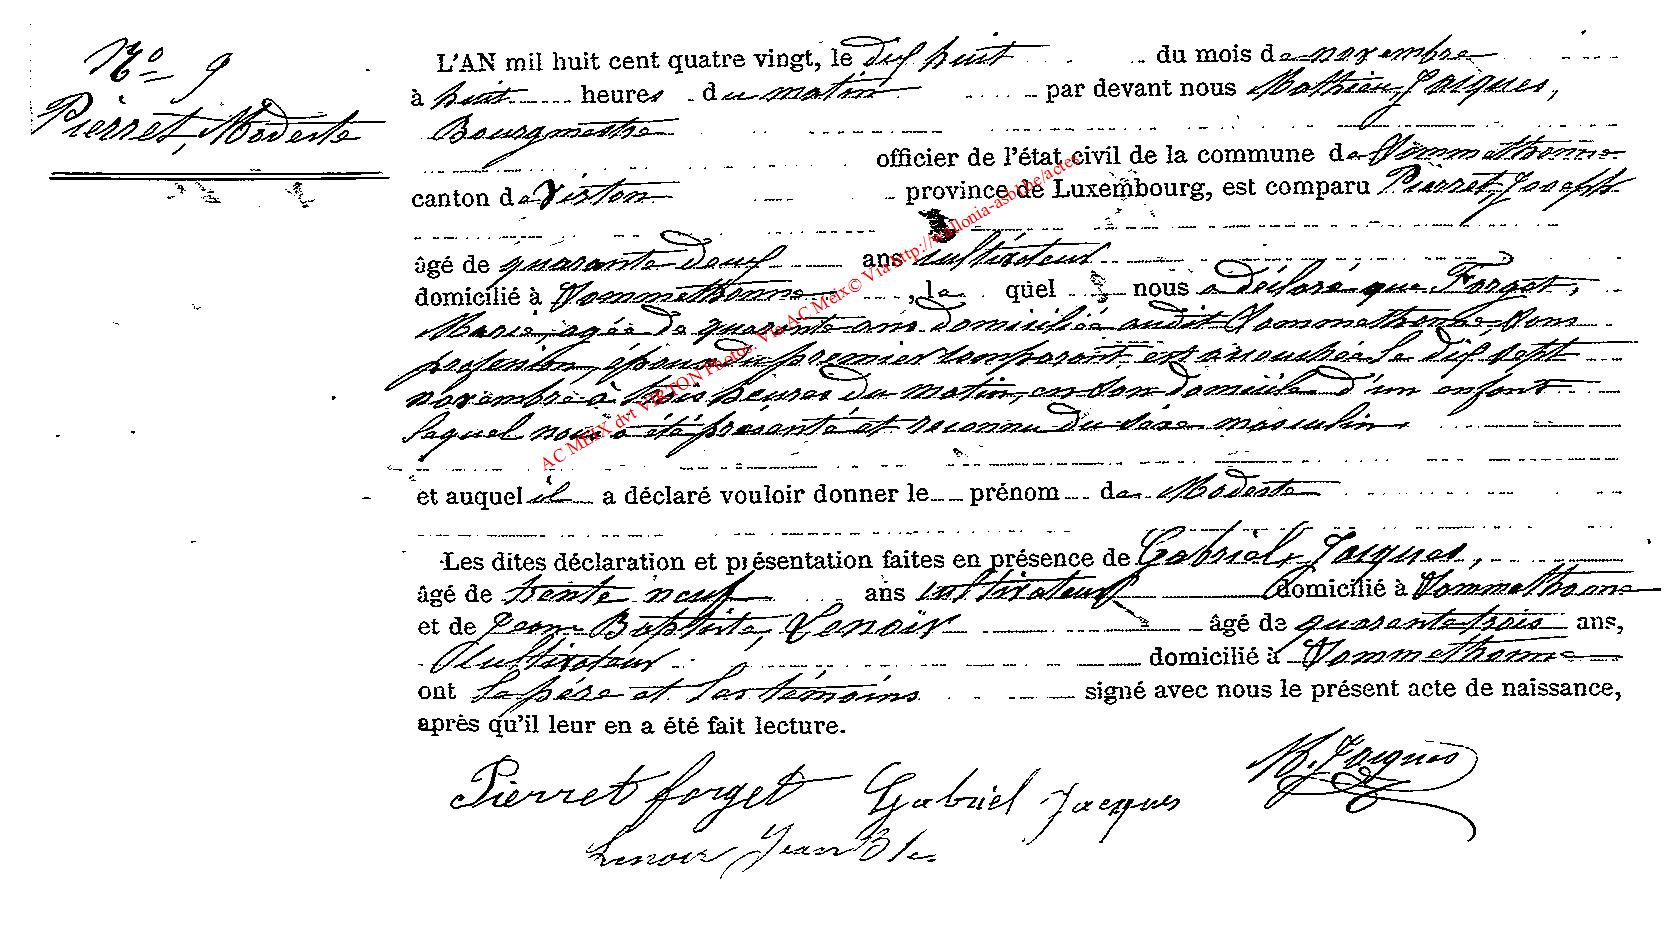 No 9
Pierret, Modeste
L'AN mil huit cent quatre vingt, le dix huit du mois de novembre
à huit heures du matin par devant nous Mathieu Jacques,
Bourgmestre
officier de l'état civil de la commune de Sommethonne
canton de Virton province de Luxembourg, est comparu Pierret, Joseph
âgé de quarante deux ans cultivateur
domicilié à Sommethonne, le quel nous a déclaré que Forget,
Marie, agée de quarante ans domiciliée audit Sommethonne sans
profession, épouse du premier comparant, est accouchée le dix sept
novembre à trois heures du matin, en son domicile d'un enfant
lequel nous a été présenté et reconnu du sexe masculin.
et auquel il a déclaré vouloir donner le prénom de Modeste
Les dites déclaration et présentation faites en présence de Gabriel, Jacques,
âgé de trente neuf ans cultivateur domicilié à Sommethonne
et de Jean-Baptiste, Lenoir âgé de quarante trois ans,
Cultivateur domicilié à Sommethonne
ont le père et les témoins signé avec nous le présent acte de naissance,
après qu'il leur en a été fait lecture.
Pierret forget Gabriel Jacques M. Jacques
Lenoir Jean Bte